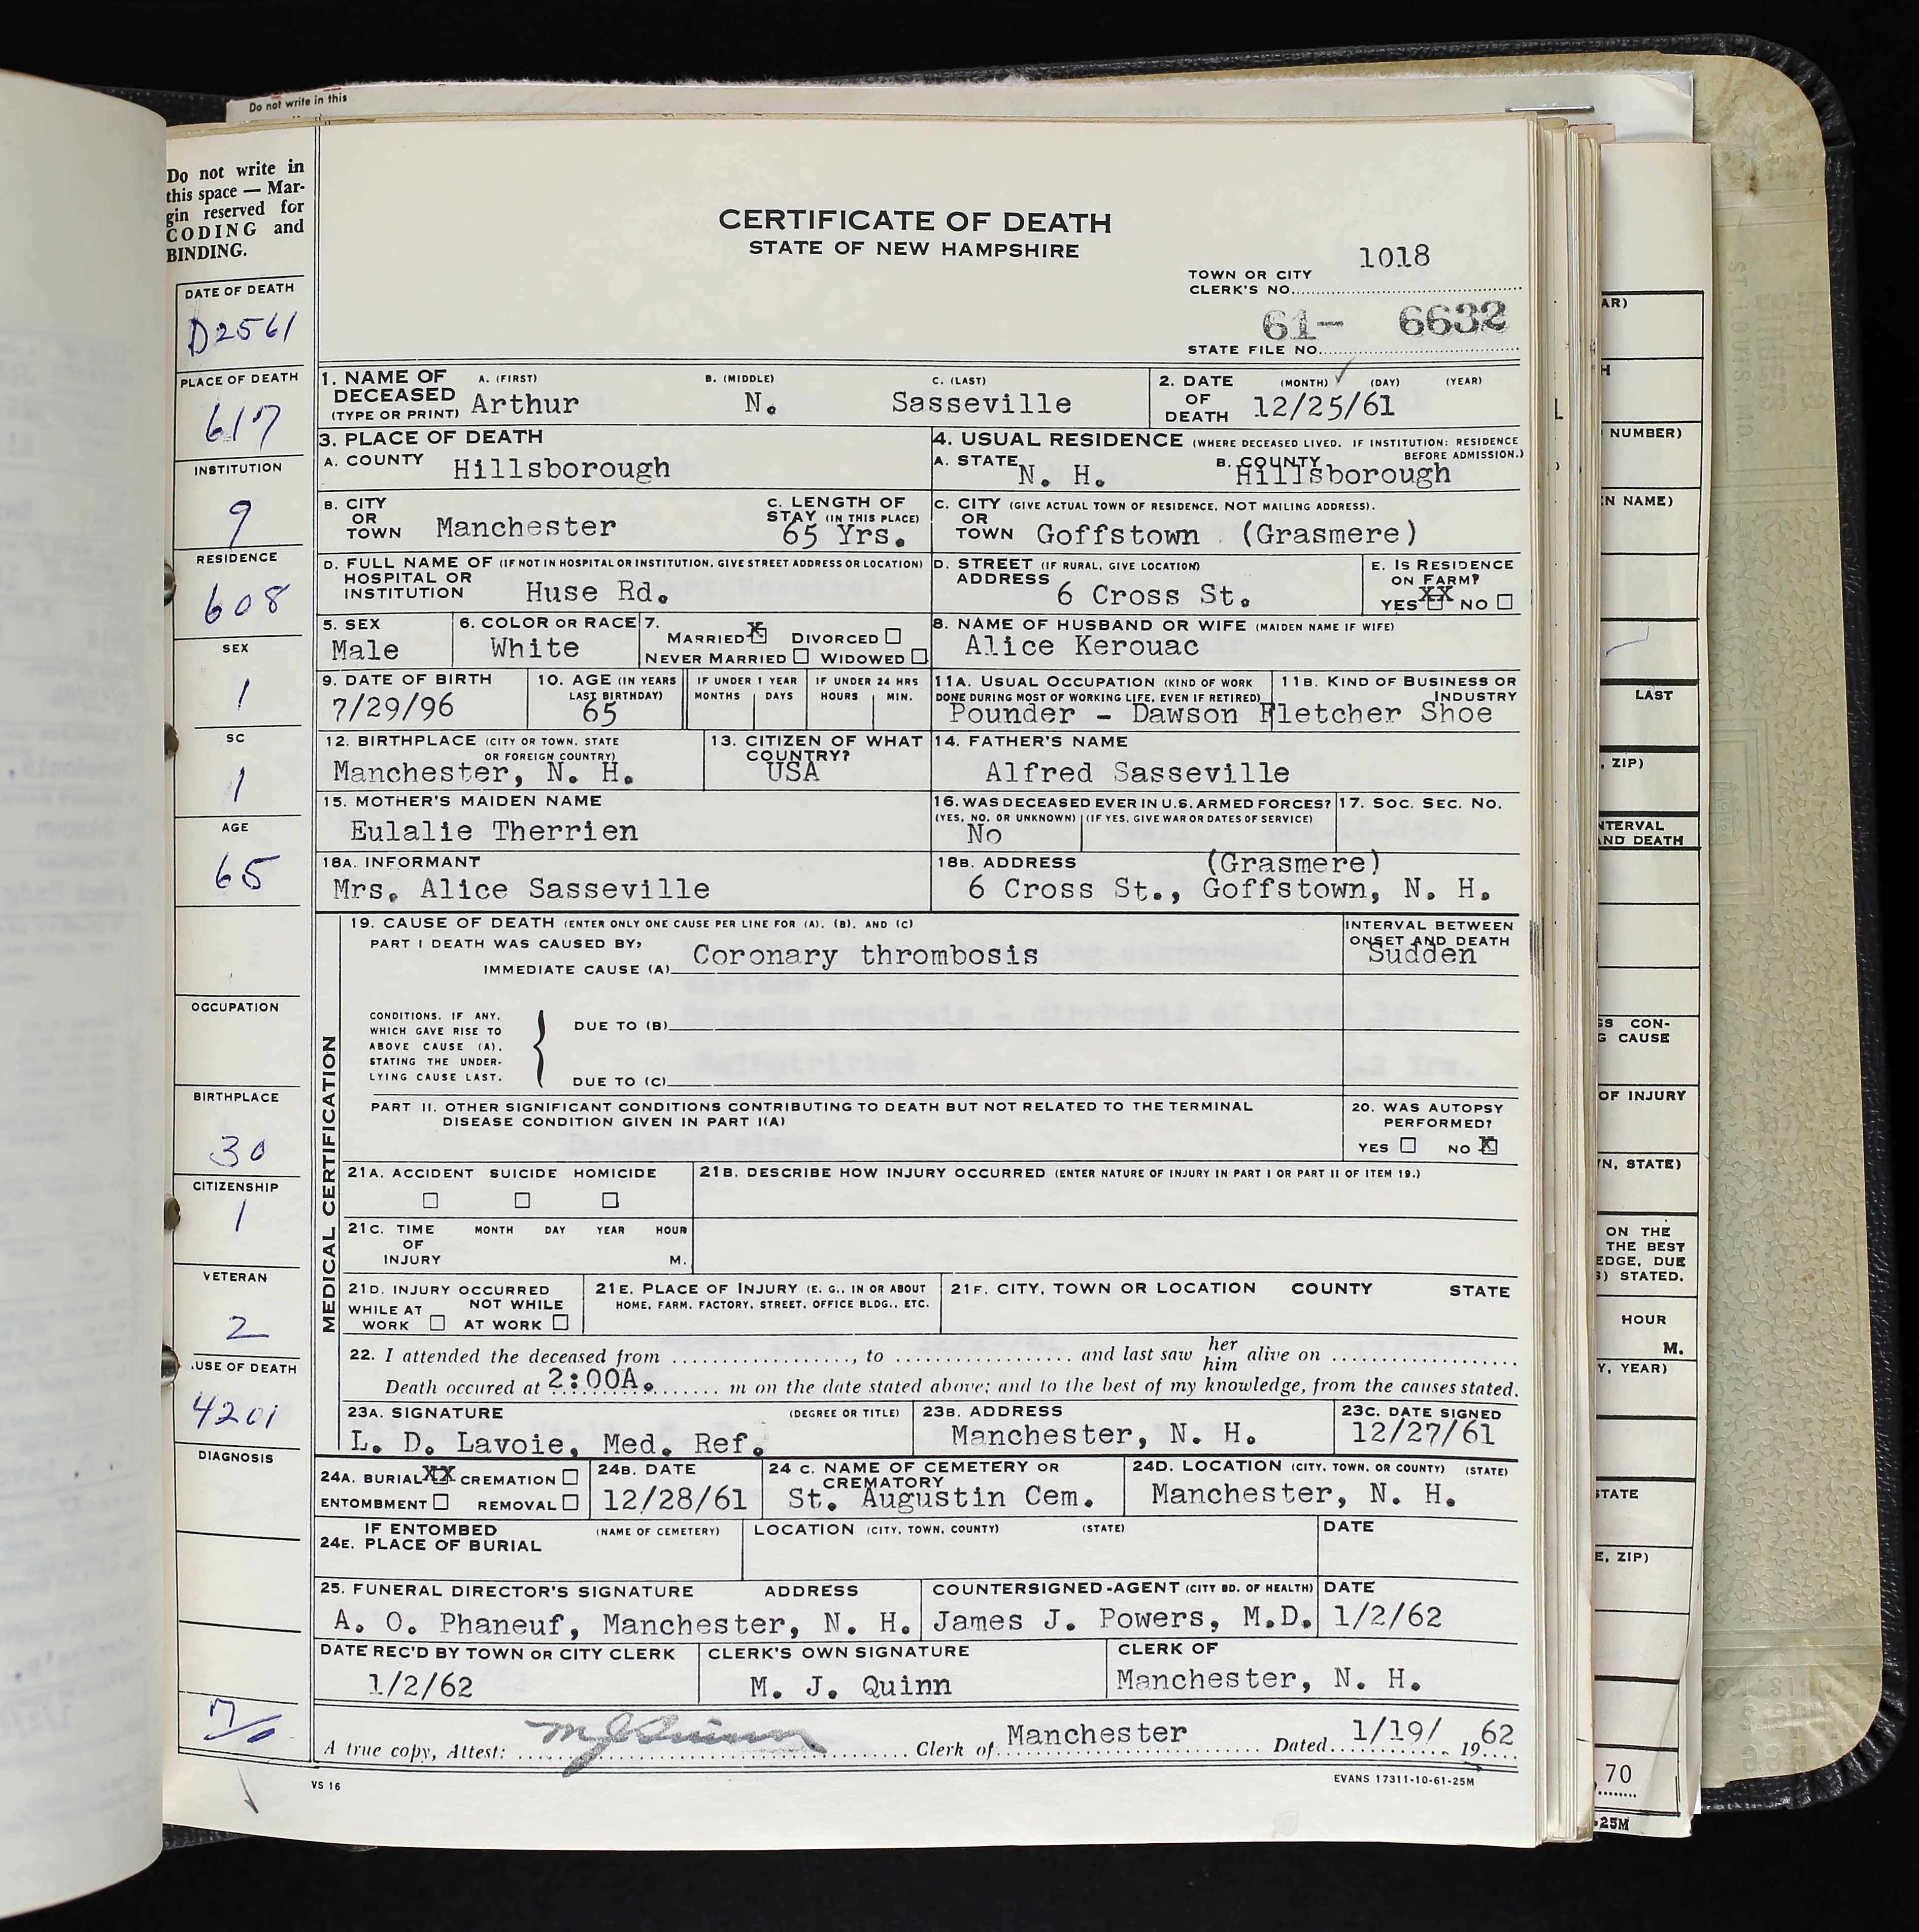 Do not write in this
Do not write in
this space — Mar-
gin reserved for
CODING and
BINDING.
CERTIFICATE OF DEATH
STATE OF NEW HAMPSHIRE
1018
TOWN OR CITY
CLERK'S NO.
61- 6632
STATE FILE NO.
DATE OF DEATH
D2561
PLACE OF DEATH
617
INSTITUTION
9
RESIDENCE
608
SEX
1
SC
1
AGE
65
OCCUPATION
BIRTHPLACE
30
CITIZENSHIP
1
VETERAN
2
USE OF DEATH
4201
DIAGNOSIS
1. NAME OF DECEASED (TYPE OR PRINT) A. (FIRST) B. (MIDDLE) C. (LAST)
Arthur N. Sasseville
2. DATE OF DEATH (MONTH) (DAY) (YEAR)
12/25/61
3. PLACE OF DEATH
A. COUNTY Hillsborough
4. USUAL RESIDENCE (WHERE DECEASED LIVED. IF INSTITUTION: RESIDENCE BEFORE ADMISSION.)
A. STATE N. H. B. COUNTY Hillsborough
B. CITY OR TOWN Manchester
C. LENGTH OF STAY (IN THIS PLACE) 65 Yrs.
C. CITY (GIVE ACTUAL TOWN OF RESIDENCE, NOT MAILING ADDRESS).
OR TOWN Goffstown (Grasmere)
D. FULL NAME OF (IF NOT IN HOSPITAL OR INSTITUTION, GIVE STREET ADDRESS OR LOCATION)
HOSPITAL OR INSTITUTION Huse Rd.
D. STREET (IF RURAL, GIVE LOCATION)
ADDRESS 6 Cross St.
E. IS RESIDENCE ON FARM?
YES XX NO
5. SEX
Male
6. COLOR OR RACE
White
7. MARRIED X DIVORCED
NEVER MARRIED WIDOWED
8. NAME OF HUSBAND OR WIFE (MAIDEN NAME IF WIFE)
Alice Kerouac
9. DATE OF BIRTH
7/29/96
10. AGE (IN YEARS LAST BIRTHDAY)
65
IF UNDER 1 YEAR MONTHS DAYS
IF UNDER 24 HRS HOURS MIN.
11A. USUAL OCCUPATION (KIND OF WORK DONE DURING MOST OF WORKING LIFE, EVEN IF RETIRED)
11B. KIND OF BUSINESS OR INDUSTRY
Pounder - Dawson Fletcher Shoe
12. BIRTHPLACE (CITY OR TOWN, STATE OR FOREIGN COUNTRY)
Manchester, N. H.
13. CITIZEN OF WHAT COUNTRY?
USA
14. FATHER'S NAME
Alfred Sasseville
15. MOTHER'S MAIDEN NAME
Eulalie Therrien
16. WAS DECEASED EVER IN U.S. ARMED FORCES?
(YES, NO, OR UNKNOWN) (IF YES, GIVE WAR OR DATES OF SERVICE)
No
17. SOC. SEC. NO.
18A. INFORMANT
Mrs. Alice Sasseville
18B. ADDRESS (Grasmere)
6 Cross St., Goffstown, N. H.
MEDICAL CERTIFICATION
19. CAUSE OF DEATH (ENTER ONLY ONE CAUSE PER LINE FOR (A), (B), AND (C)
PART I DEATH WAS CAUSED BY:
IMMEDIATE CAUSE (A) Coronary thrombosis
INTERVAL BETWEEN ONSET AND DEATH
Sudden
CONDITIONS, IF ANY,
WHICH GAVE RISE TO
ABOVE CAUSE (A),
STATING THE UNDER-
LYING CAUSE LAST.
DUE TO (B)
DUE TO (C)
PART II. OTHER SIGNIFICANT CONDITIONS CONTRIBUTING TO DEATH BUT NOT RELATED TO THE TERMINAL
DISEASE CONDITION GIVEN IN PART I(A)
20. WAS AUTOPSY PERFORMED?
YES NO X
21A. ACCIDENT SUICIDE HOMICIDE
21B. DESCRIBE HOW INJURY OCCURRED (ENTER NATURE OF INJURY IN PART I OR PART II OF ITEM 19.)
21C. TIME OF INJURY MONTH DAY YEAR HOUR
M.
21D. INJURY OCCURRED
WHILE AT WORK NOT WHILE AT WORK
21E. PLACE OF INJURY (E. G., IN OR ABOUT
HOME, FARM, FACTORY, STREET, OFFICE BLDG., ETC.
21F. CITY, TOWN OR LOCATION COUNTY STATE
22. I attended the deceased from ........, to ........ and last saw her him alive on ........
Death occured at 2:00A. m on the date stated above; and to the best of my knowledge, from the causes stated.
23A. SIGNATURE (DEGREE OR TITLE)
L. D. Lavoie, Med. Ref.
23B. ADDRESS
Manchester, N. H.
23C. DATE SIGNED
12/27/61
24A. BURIAL XX CREMATION
ENTOMBMENT REMOVAL
24B. DATE
12/28/61
24 C. NAME OF CEMETERY OR CREMATORY
St. Augustin Cem.
24D. LOCATION (CITY, TOWN, OR COUNTY) (STATE)
Manchester, N. H.
IF ENTOMBED (NAME OF CEMETERY) LOCATION (CITY, TOWN, COUNTY) (STATE) DATE
24E. PLACE OF BURIAL
25. FUNERAL DIRECTOR'S SIGNATURE ADDRESS
A. O. Phaneuf, Manchester, N. H.
COUNTERSIGNED-AGENT (CITY BD. OF HEALTH)
James J. Powers, M.D.
DATE
1/2/62
DATE REC'D BY TOWN OR CITY CLERK
1/2/62
CLERK'S OWN SIGNATURE
M. J. Quinn
CLERK OF
Manchester, N. H.
A true copy, Attest: MJ Quinn Clerk of Manchester Dated 1/19/ 1962
VS 16
EVANS 17311-10-61-25M
AR)
H
NUMBER)
N NAME)
LAST
, ZIP)
NTERVAL
AND DEATH
SS CON-
G CAUSE
OF INJURY
N, STATE)
ON THE
THE BEST
EDGE, DUE
S) STATED.
HOUR
M.
Y, YEAR)
STATE
E, ZIP)
70
25M